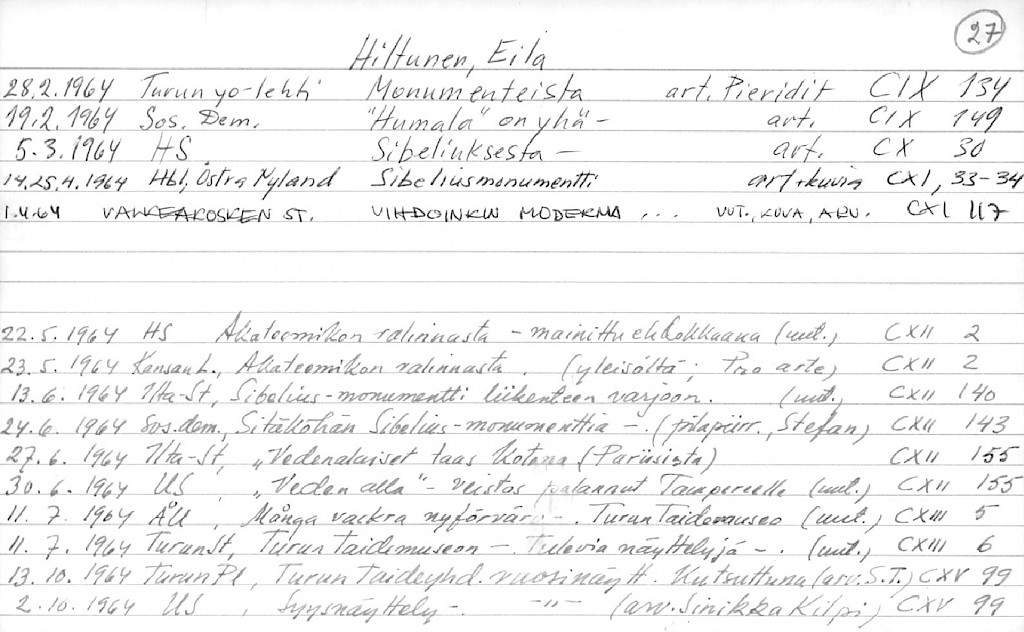 27
Hiltunen, Eila
28.2.1964 Turun yo-lehti Monumenteista art. Pieridit CIX 134
19.2.1964 Sos. Dem. "Humala" on yhä - art. CIX 149
5.3.1964 HS Sibeliuksesta - art. CX 30
14.25.4.1964 Hbl, Östra Nyland Sibeliusmonumentti art+kuvia CXI, 33-34
1.4.64 VALKEAKOSKEN ST. VIHDOINKIN MODERNIA ... UUT., KUVA, ARV. CXI 117
22.5.1964 HS Akateemikon valinnasta - mainittu ehdokkaana (uut.) CXII 2
23.5.1964 Kansan L., Akateemikon valinnasta. (yleisöltä; Pro arte) CXII 2
13.6.1964 Ilta-St, Sibelius-monumentti liikenteen varjoon. (uut.) CXII 140
24.6.1964 Sos.dem., Sitäköhän Sibelius-monumenttia -. (pilapiirr., Stefan) CXII 143
27.6.1964 Ilta-St, "Vedenalaiset taas Kotona (Pariisista) CXII 155
30.6.1964 US, "Veden alla" - veistos palannut Tampereelle (uut.) CXII 155
11.7.1964 ÅU, Många vackra nyförvärv -. Turun Taidemuseo (uut.) CXIII 5
11.7.1964 TurunSt, Turun Taidemuseon -. Tulevia näyttelyjä -. (uut.) CXIII 6
13.10.1964 TurunPl, Turun Taideyhd. vuosinäytt. Kutsuttuna (arv. S.T.) CXV 99
2.10.1964 US, Syysnäyttely -. -"- (arv. Sinikka Kilpi) CXV 99